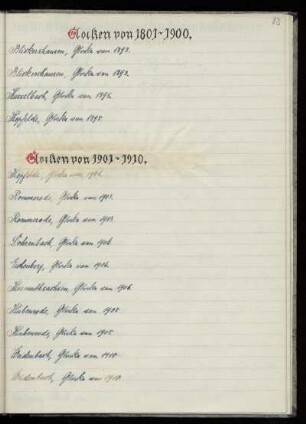 83
Glocken von 1801-1900.
Blickershausen, Glocke von 1893.
Blickershausen, Glocke von 1893.
Hasselbach, Glocke von 1896.
Hopfelde, Glocke von 1895.
Glocken von 1901-1910.
Hopfelde, Glocke von
Rommerode, Glocke von 1903.
Rommerode, Glocke von 1903.
Glocke von 1906.
Eschenberg, Glocke von 1906.
Glocke von 1906.
Hubenrode, Glocke von 1905.
Hubenrode, Glocke von 1905.
Weidenbach, Glocke von 1910.
Weidenbach, Glocke von 1910.